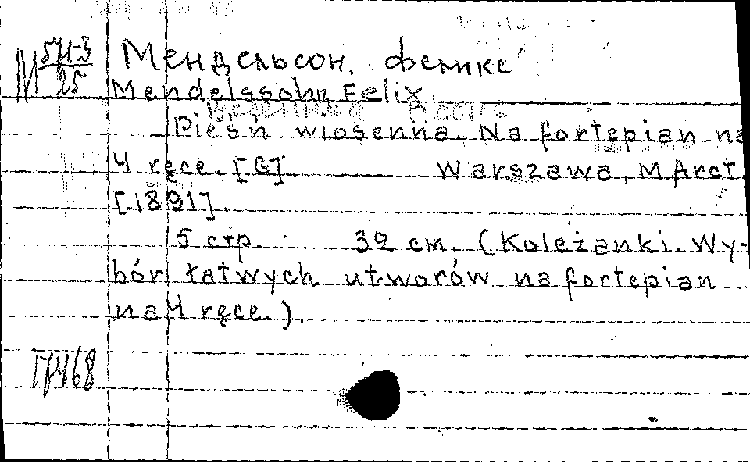 М 571-3 Мендельсон, феликс
25 Mendelssohn Felix
Pieśń wiosenna. Na fortepian na
4 ręce. [G] Warszawa, M Arct.
[1891].
5 стр. 32 см. (Koleżanki. Wy-
bór łatwych utworów na fortepian
na 4 ręce.)